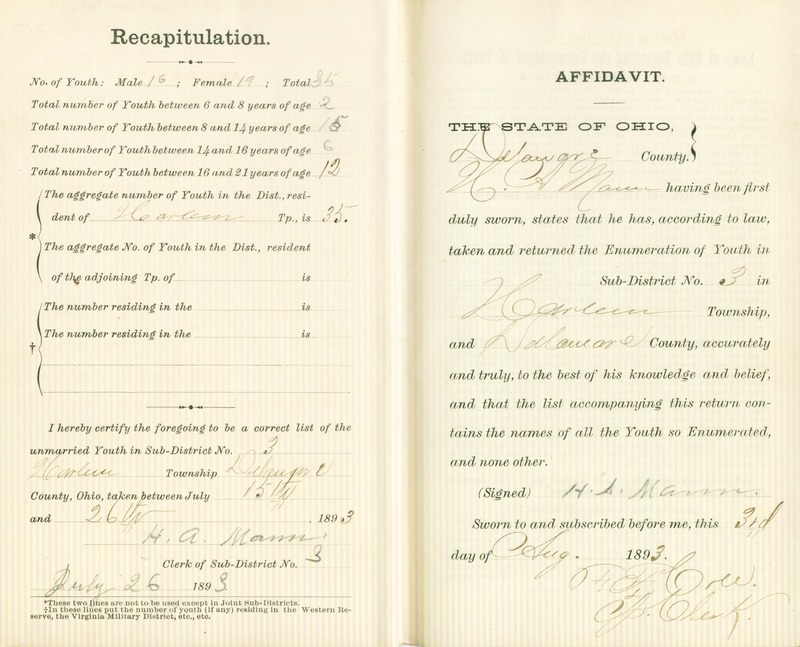 Recapitulation.
No. of Youth: Male 16 ; Female 19 ; Total 35
Total number of Youth between 6 and 8 years of age 2
Total number of Youth between 8 and 14 years of age 15
Total number of Youth between 14 and 16 years of age 6
Total number of Youth between 16 and 21 years of age 12
The aggregate number of Youth in the Dist., resi-
dent of Harlem Tp., is 35.
*
The aggregate No. of Youth in the Dist., resident
of the adjoining Tp. of is
The number residing in the is
The number residing in the is
†
I hereby certify the foregoing to be a correct list of the
unmarried Youth in Sub-District No. 3
Harlem Township Delaware
County, Ohio, taken between July 15th
and 26th, 1893
H. A. Mann
Clerk of Sub-District No. 3
July 26 1893.
*These two lines are not to be used except in Joint Sub-Districts.
†In these lines put the number of youth (if any) residing in the Western Re-
serve, the Virginia Military District, etc., etc.
AFFIDAVIT.
THE STATE OF OHIO,
Delaware County.
H. A Mann having been first
duly sworn, states that he has, according to law,
taken and returned the Enumeration of Youth in
Sub-District No. 3 in
Harlem Township,
and Delaware County, accurately
and truly, to the best of his knowledge and belief,
and that the list accompanying this return con-
tains the names of all the Youth so Enumerated,
and none other.
(Signed) H. A. Mann
Sworn to and subscribed before me, this 3rd
day of Aug. 1893.
Cole.
Tp. Clerk.